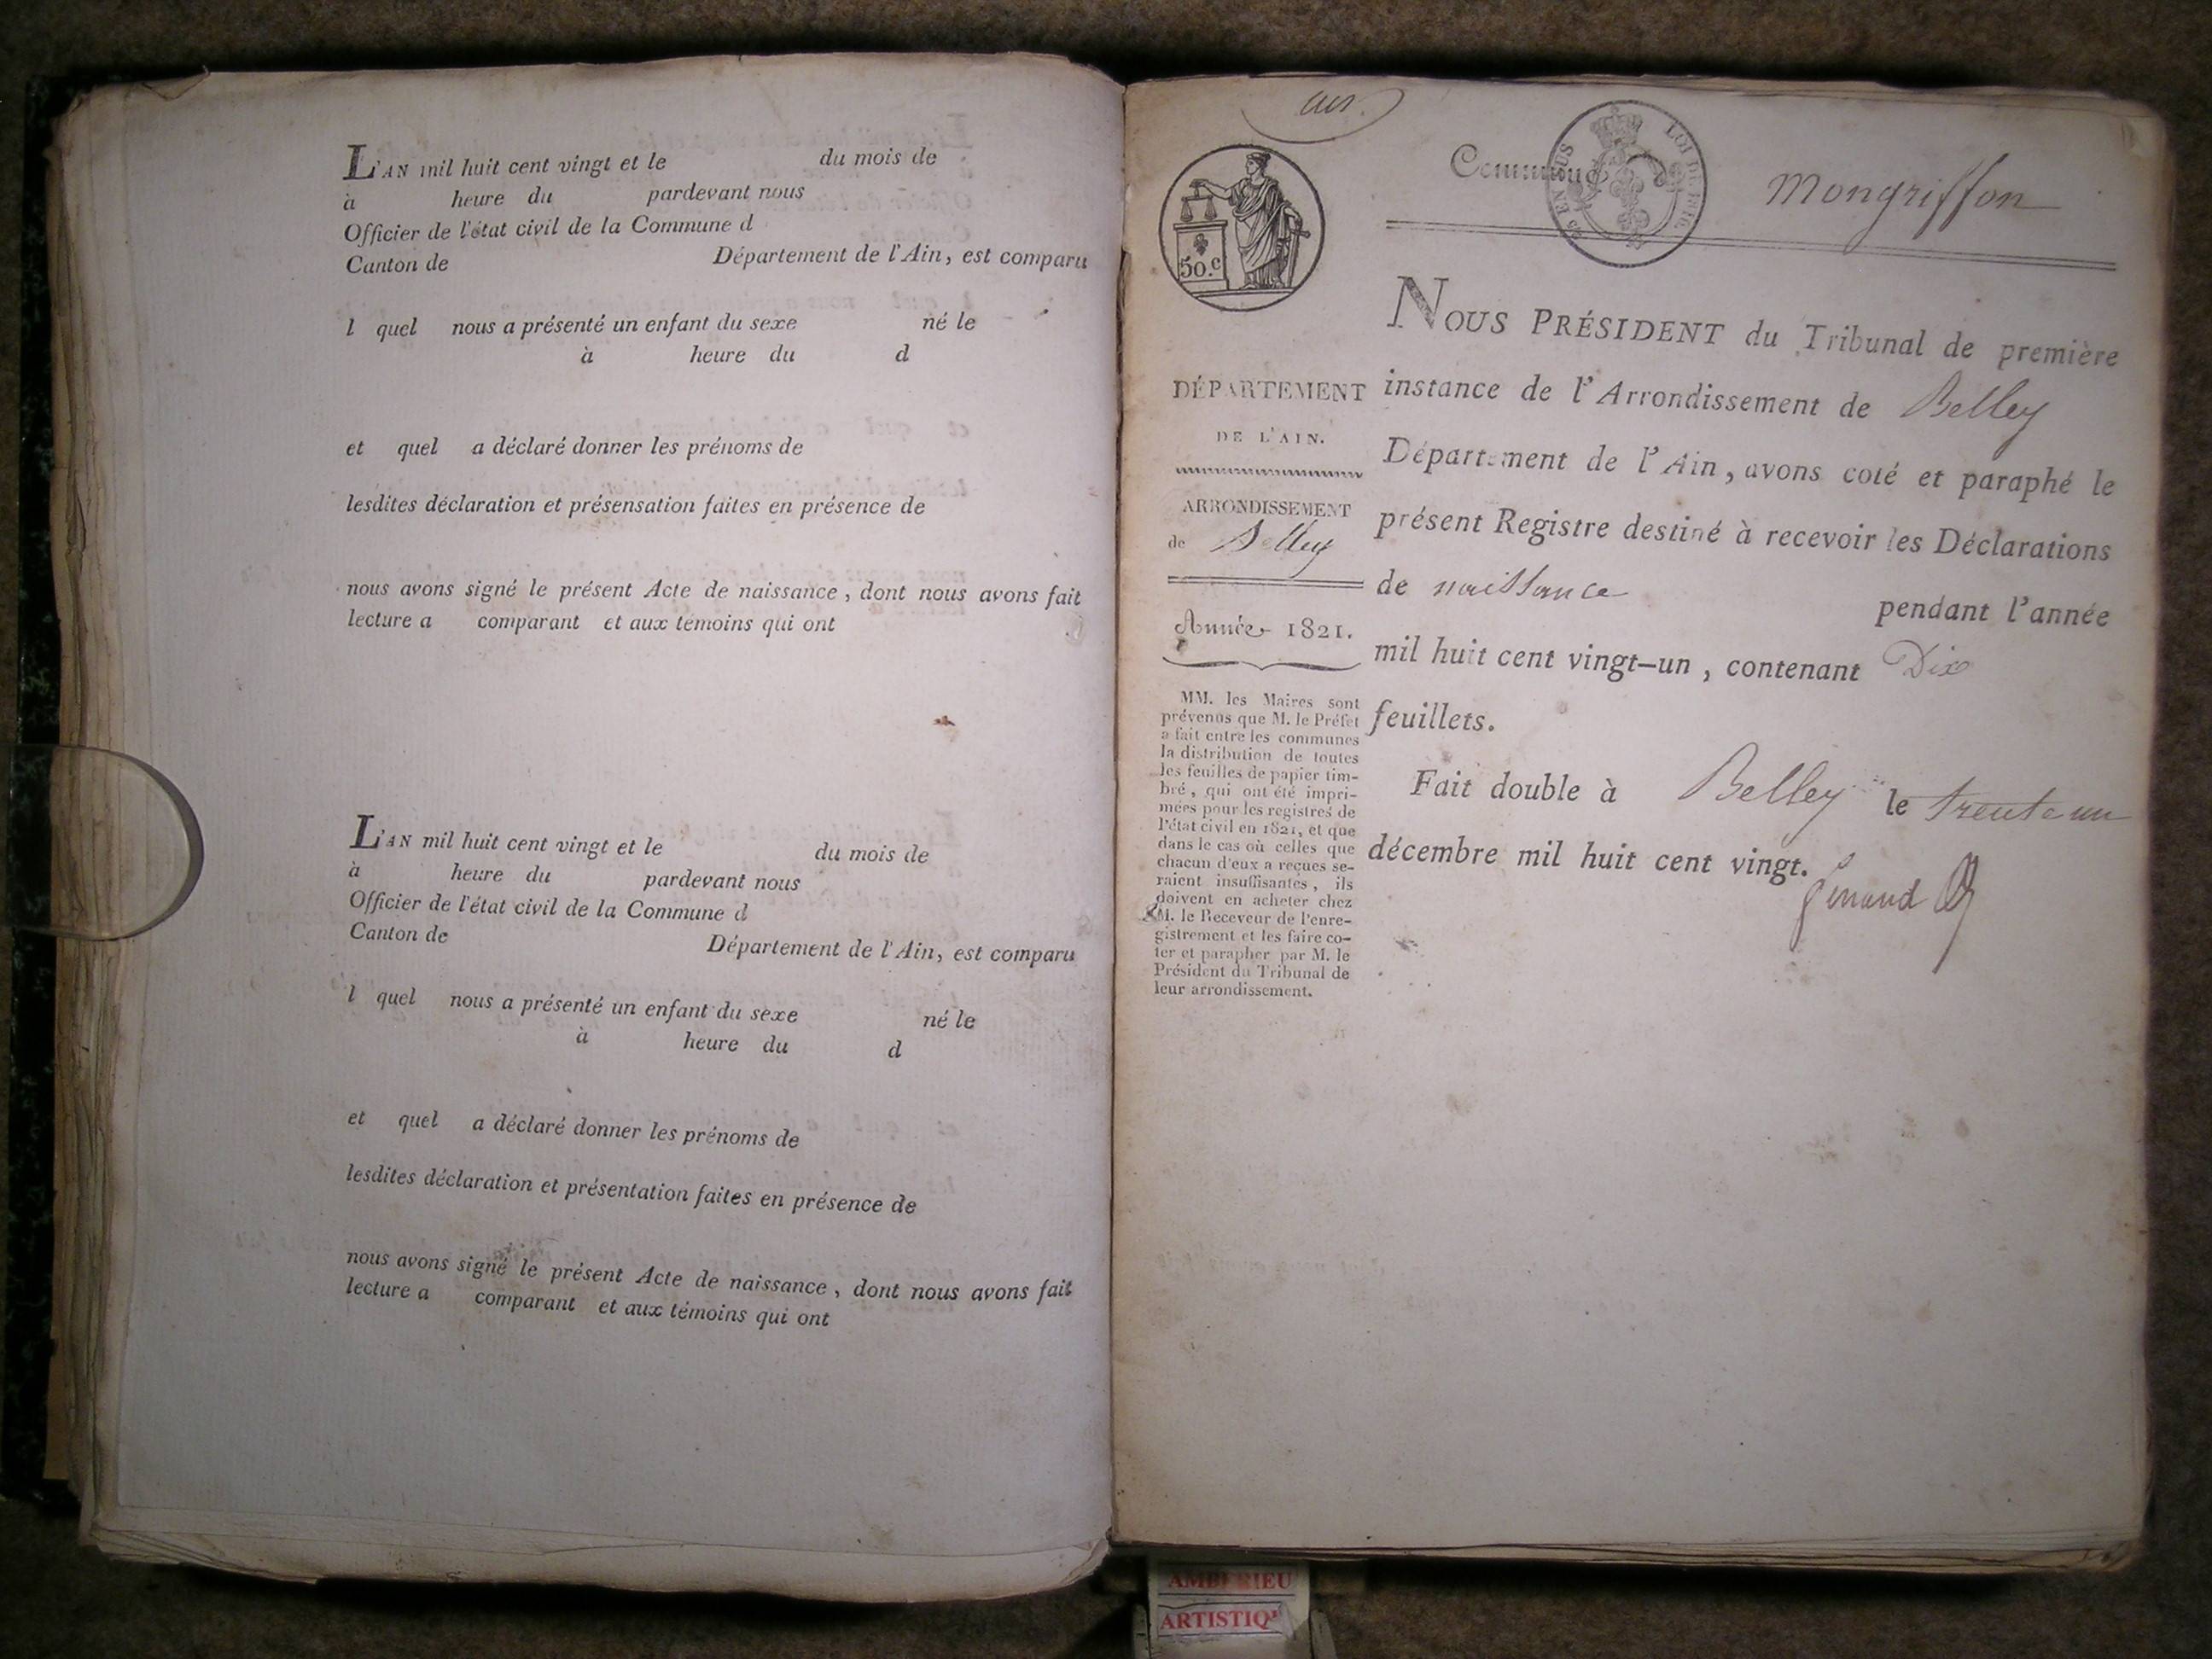 L'AN mil huit cent vingt et le du mois de
à heure du pardevant nous
Officier de l'état civil de la Commune d
Canton de Département de l'Ain, est comparu
l quel nous a présenté un enfant du sexe né le
à heure du d
et quel a déclaré donner les prénoms de
lesdites déclaration et présensation faites en présence de
nous avons signé le présent Acte de naissance, dont nous avons fait
lecture a comparant et aux témoins qui ont
L'AN mil huit cent vingt et le du mois de
à heure du pardevant nous
Officier de l'état civil de la Commune d
Canton de Département de l'Ain, est comparu
l quel nous a présenté un enfant du sexe né le
à heure du d
et quel a déclaré donner les prénoms de
lesdites déclaration et présentation faites en présence de
nous avons signé le présent Acte de naissance, dont nous avons fait
lecture a comparant et aux témoins qui ont
50.c
LOI DE
EN SUS
Commune Mongriffon
DÉPARTEMENT
DE L'AIN.
ARRONDISSEMENT
de Belley
Année 1821.
MM. les Maires sont
prévenus que M. le Préfet
a fait entre les communes
la distribution de toutes
les feuilles de papier tim-
bré, qui ont été impri-
mées pour les registres de
l'état civil en 1821, et que
dans le cas où celles que
chacun d'eux a reçues se-
raient insuffisantes, ils
doivent en acheter chez
M. le Receveur de l'enre-
gistrement et les faire co-
ter et parapher par M. le
Président du Tribunal de
leur arrondissement.
NOUS PRÉSIDENT du Tribunal de première
instance de l'Arrondissement de Belley
Département de l'Ain, avons coté et paraphé le
présent Registre destiné à recevoir les Déclarations
de naissance pendant l'année
mil huit cent vingt-un, contenant Dix
feuillets.
Fait double à Belley le trente un
décembre mil huit cent vingt.
AMBERIEU
ARTISTIQ